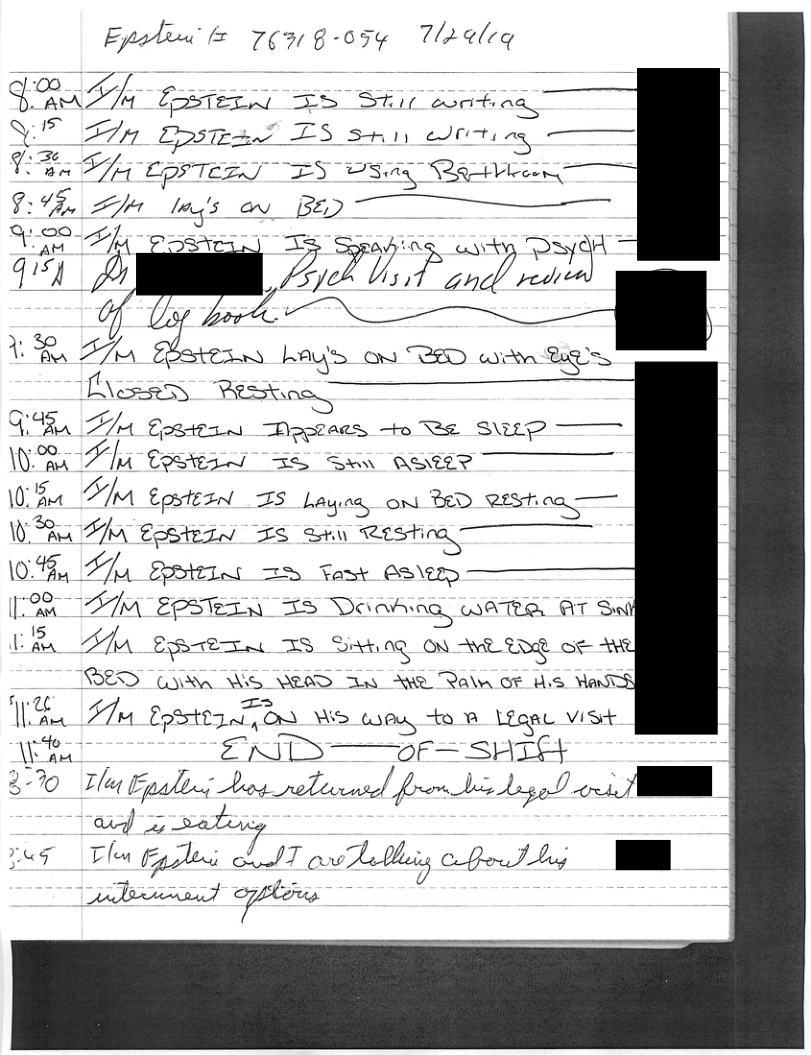 Epstein # 76318-054 7/29/19
8:00 AM I/M EPSTEIN IS Still writing
8:15 I/M EPSTEIN IS still writing
8:30 AM I/M EPSTEIN IS using Bathroom
8:45 AM I/M lay's on BED
9:00 AM I/M EPSTEIN IS Speaking with PSYCH
915A Dr , Psych Visit and review
of log book.
9:30 AM I/M EPSTEIN LAY'S ON BED with Eye's
Closed Resting
9:45 AM I/M EPSTEIN Appears to BE SLEEP
10:00 AM I/M EPSTEIN IS Still ASLEEP
10:15 AM I/M EPSTEIN IS LAying ON BED RESting
10:30 AM I/M EPSTEIN IS Still RESting
10:45 AM I/M EPSTEIN IS FAST ASlEEp
11:00 AM I/M EPSTEIN IS Drinking WATER AT SINK
11:15 AM I/M EPSTEIN IS Sitting ON the EDge OF the
BED with His HEAD IN the PAlm OF His HANDS
11:26 AM I/M EPSTEIN, IS ON His WAY to A LEGAL VISIT
11:40 AM END OF-SHIft
3:30 I/m Epstein has returned from his legal visit
and is eating
3:45 I/m Epstein and I are talking about his
internment options